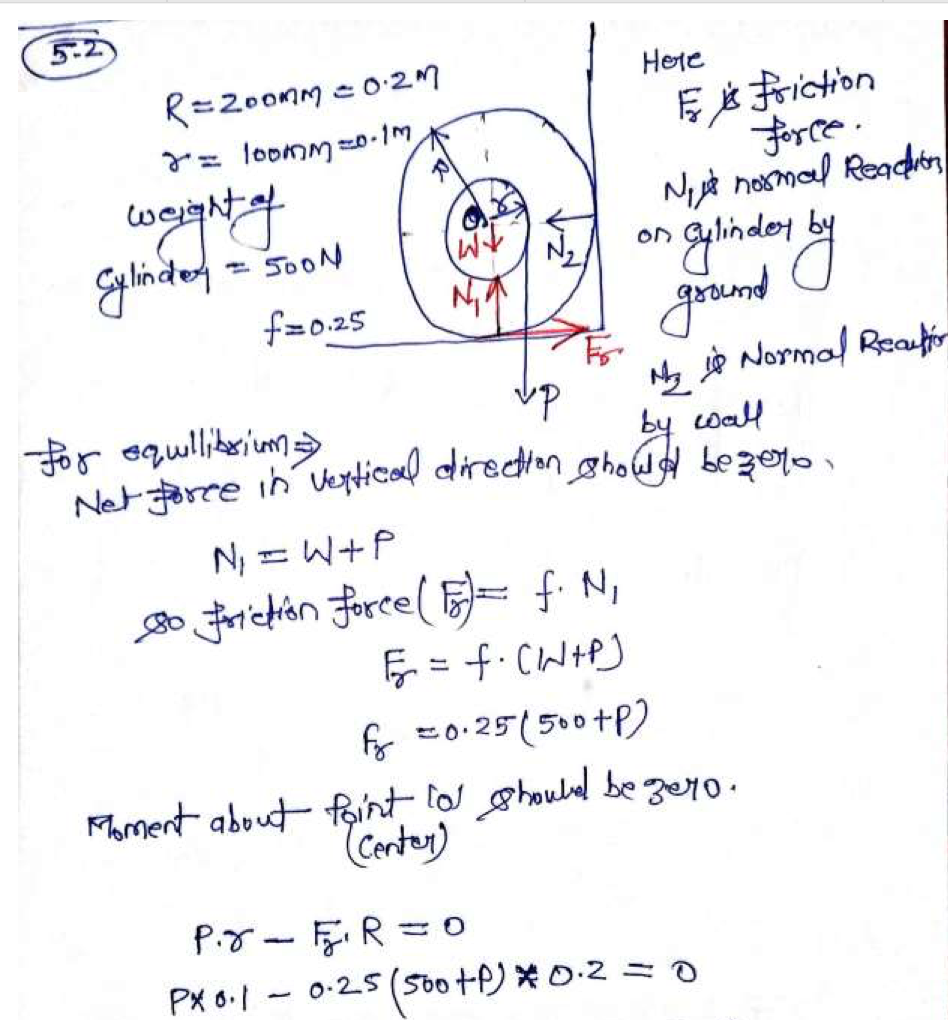 5.2
R = 200mm = 0.2m
r = 100mm = 0.1m
weight of
cylinder = 500N
f = 0.25
R
r
W
N1
N2
Fr
P
Here
Fr is friction
force.
N1 is normal Reaction
on cylinder by
ground
N2 is Normal Reaction
by wall
for equllibrium ⇒
Net force in vertical direction should be zero.
N1 = W+P
so friction force (Fr) = f. N1
Fr = f. (W+P)
fr = 0.25 (500+P)
Moment about point 'o' should be zero.
(center)
P.r - Fr.R = 0
P× 0.1 - 0.25 (500+P) * 0.2 = 0